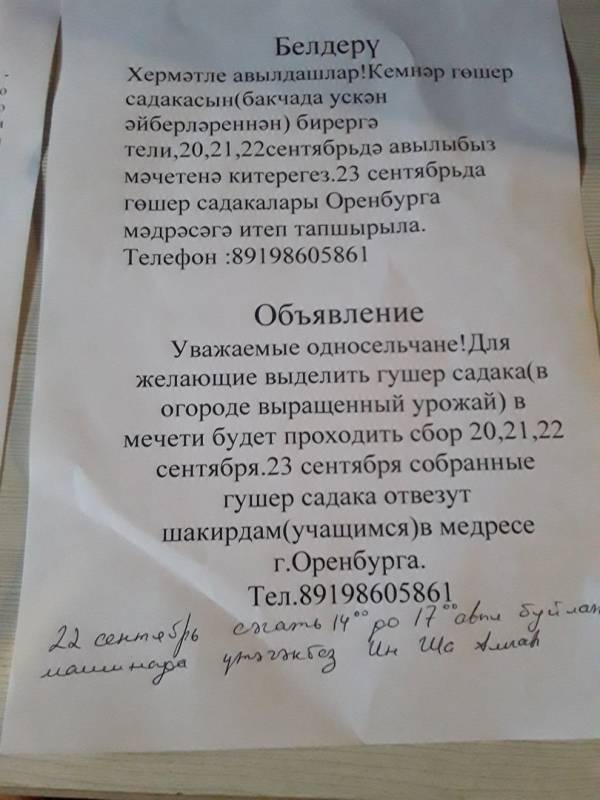 Белдерү
Хермәтле авылдашлар!Кемнәр гөшер
садакасын(бакчада ускән
әйберләреннән) бирергә
тели,20,21,22сентябрьдә авылыбыз
мәчетенә китерегез.23 сентябрьда
гөшер садакалары Оренбурга
мәдрәсәгә итеп тапшырыла.
Телефон :89198605861
Объявление
Уважаемые односельчане!Для
желающие выделить гушер садака(в
огороде выращенный урожай) в
мечети будет проходить сбор 20,21,22
сентября.23 сентября собранные
гушер садака отвезут
шакирдам(учащимся)в медресе
г.Оренбурга.
Тел.89198605861
22 сентябрь сәгать 14⁰⁰ до 17⁰⁰ авыл буйлап
машинада үтәчәкбез Ин Ша Аллаһ